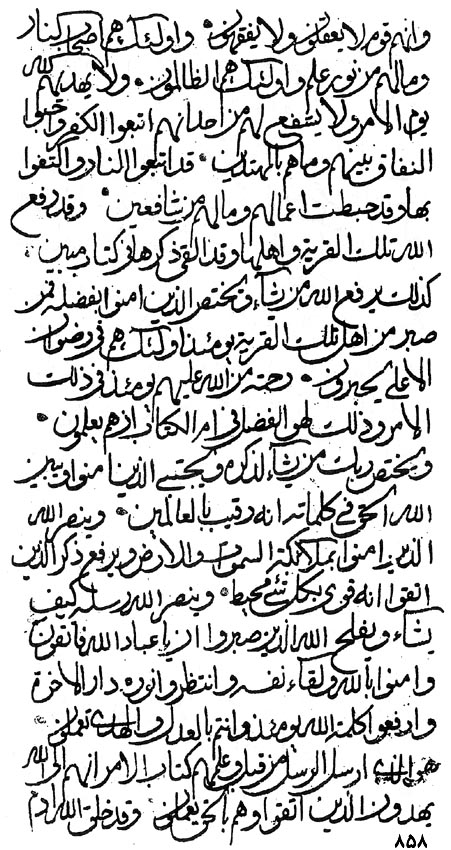 وانهم قوم لا يعقلون ولا يفقهون واولئك هم اصحاب النار
ومالهم من نور علم واولئك هم الظالمون ولا يهديهم الله
يوم الامر ولا يشفع لهم من احد انهم اتبعوا الكفر
النفاق بينهم وما هم بالمهتدين قد اتبعوا النار واكتفوا
بها وقد حبطت اعمالهم ومالهم من شافعين وقد رفع
الله تلك القرية واهلها وقد القى ذكرها في كتاب مبين
كذلك يرفع الله من يشاء ويختص الذين امنوا بفضله فمن
صبر من اهل تلك القرية يومئذ اولئك هم في رضوان
الاعلى يحبرون رحمة من الله عليهم يومئذ في ذلك
الامر وذلك لهو الفضل في ام الكتاب اذ هم يعلمون
ويختص ربك من يشاء لذكره ويجتبي الذين امنوا
الله الحق في كلماته انه رقيب بالعالمين وينصر الله
الذين امنوا بملائكة السموات والارض ويرفع ذكر الذين
اتقوا انه قوي بكل شئ محيط وينصر الله رسله كيف
يشاء ويفلح الله الذين صبروا ان يا عباد الله فاتقون
وامنوا بالله ولقاء نفسه وانتظروا نوره دار الاخرة
وارفعوا كلمة الله يومئذ وانتم بالعدل تعملون
ارسل الرسل من قبل وعلمهم كتاب الامر انهم الى الله
يهدون الذين اتقوا وهم بالحق يعملون وقد خلق الله ادم
٨٥٨